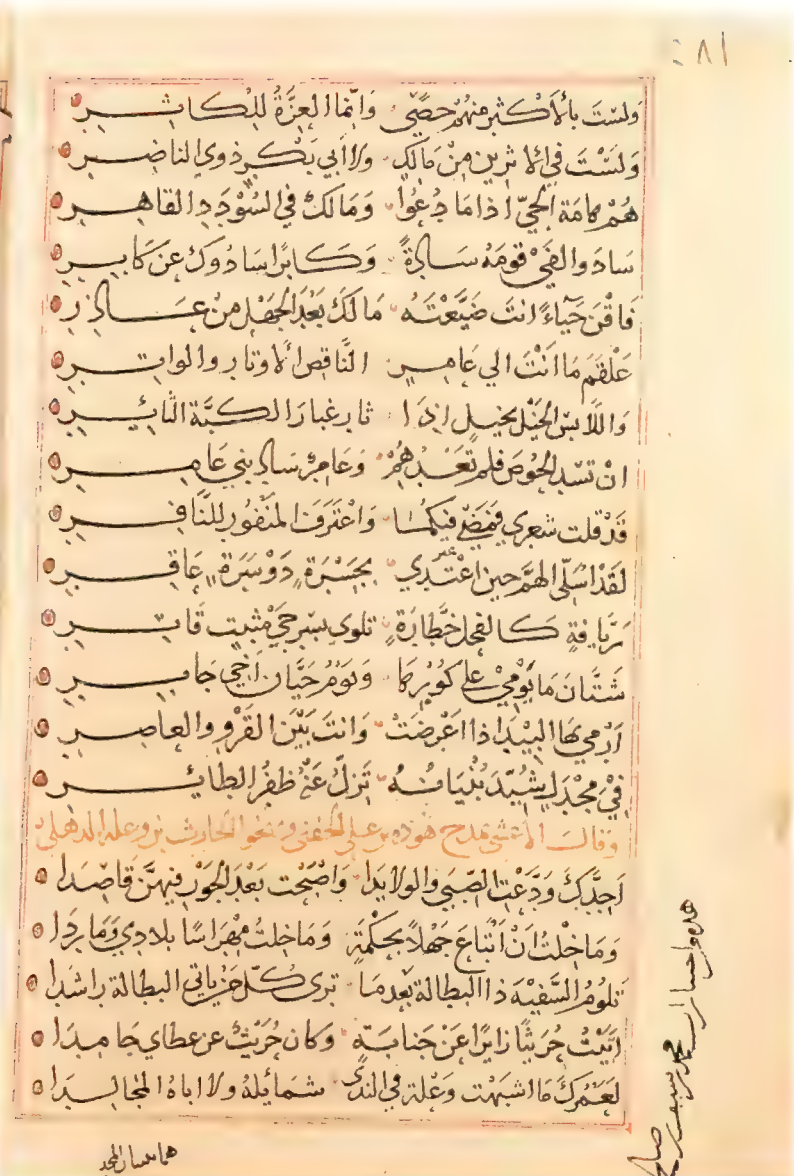 ٨١
وَلَسْتَ بالأَكثرِ منهُمُ حصًّى وَاِنّما العِزَّةُ لِلْكاثِر
وَلَسْتَ في الاثرين مِنْ مَالِكٍ ولا ابي بَكْرٍ ذوي الناضِر
هُمْ هامَة الحَيّ اذا مَا دُعُوا وَمَالكٌ في السُّوْدَدِ القاهِر
سادَ والفى قومَهُ سادَةً وَكابرًا سَادُوكَ عَن كابِر
فَاقْنَ حَيَاءً انتَ ضَيَّعْتَهُ مَالَكَ بَعْدَ الجَهْلِ مِنْ عَاذِر
عَلْقَمَ مَا اَنْتَ الي عَامِر النَّاقِص الاوتار والواتِر
وَاللَّابس الخيْل بخيل اذَا ثار غبارُ الكبَّة الثائِر
انْ تَسُد الحُوصَ فلم تَعْدُهُمْ وَعَامِرٌ سَادَ بني عَامِر
قَدْ قلت شعري فمضَى فيكمَا وَاعْتَرَفَ المَنْفُور للنَّافِر
لَقَدْ اُسَلّى الهَمَّ حين اعْتَدي بجَسْرَةٍ دَوْسَرَةٍ عَاقِر
زيّافةٍ كالفحل خَطَّارَةٍ تلوى بشرخي مَيْتٍ قاتِر
شَتَّانَ مَا يَوْمِيْ على كُوْرِهَا وَيَوْمُ حَيَّانَ اَخِي جَابِر
اَرْمي بهَا البَيْدَاَ اذا اَعْرَضَتْ وَانتَ بَيْنَ القَرْوِ والعاصِر
فِيْ مِجْدَلٍ شُيِّدَ بُنْيَانُهُ يَزِلُّ عَنْهُ ظفُرُ الطائِر
وقال الاعشى يمدح هوذه بن علي الحنفي ويهجو الحارث بن وعله الذهلي
اَجِدَّكَ وَدَّعْتَ الصِّبَى والوَلايدا وَاصْبَحْتَ بَعْدَ الجَوْرِ فيهِنَّ قَاصِدَا
وَمَا خِلْتُ اَنْ اَبْتَاعَ جَهْلاً بحِكْمَةٍ وَمَا خِلْتُ مِهْرَاسًا بلادي وَمَارِدَا
يَلومُ السَّفيهُ ذا البَطالة بَعْدمَا يَرى كُلَّ مَا يَاتي البطالةَ رَاشدا
اَتَيْتُ حُرَيثًا زايرًا عَنْ جَنابَةٍ وَكان حُرَيثٌ عن عطاي جَامِدَا
لعَمْرُكَ مَا اَشبَهْتَ وَعْلَةَ في النَّدَى شَمائِلَهُ ولا اباهُ المُجالِدَا